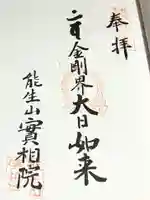 奉拝
金剛界大日如来
能生山實相院